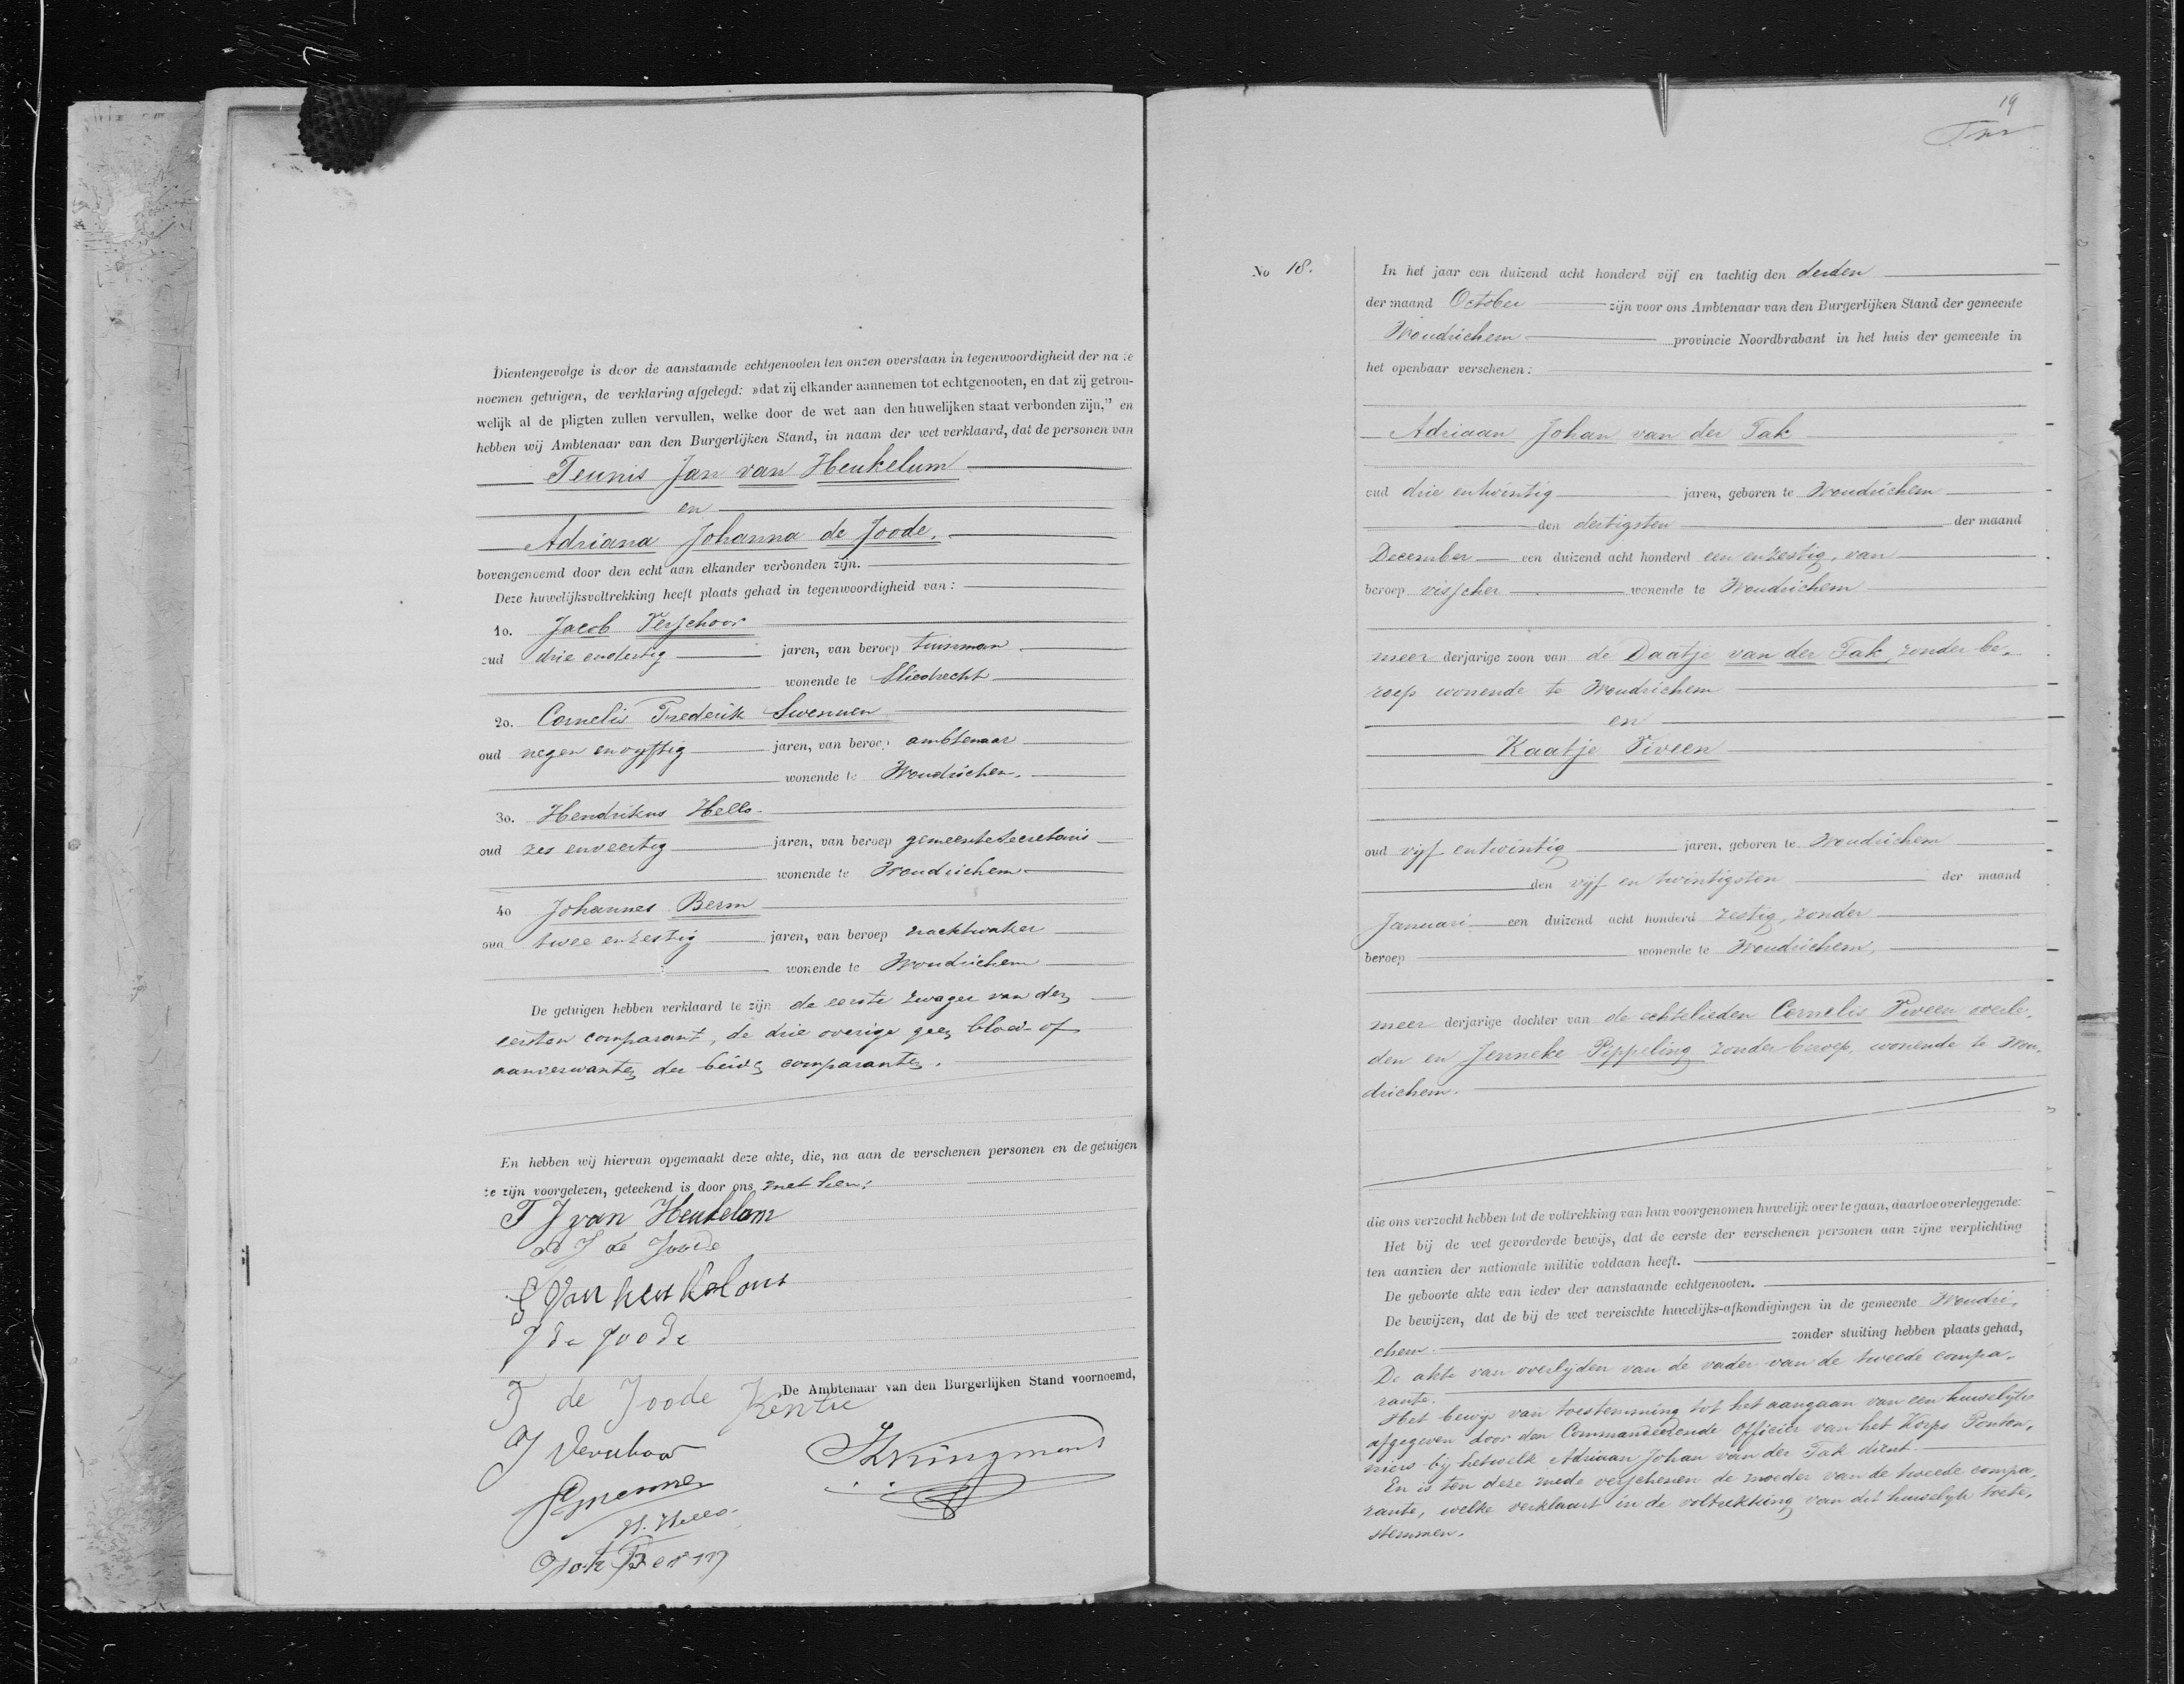 Dientengevolge is door de aanstaande echtgenooten ten onzen overstaan in tegenwoordigheid der na te
noemen getuigen, de verklaring afgelegd: »dat zij elkander aannemen tot echtgenooten, en dat zij getrou-
welijk al de pligten zullen vervullen, welke door de wet aan den huwelijken staat verbonden zijn,” en
hebben wij Ambtenaar van den Burgerlijken Stand, in naam der wet verklaard, dat de personen van
Teunis Jan van Heukelum
en
Adriana Johanna de Joode.
bovengenoemd door den echt aan elkander verbonden zijn.
Deze huwelijksvoltrekking heeft plaats gehad in tegenwoordigheid van:
1o. Jacob Verschoor
oud drie endertig jaren, van beroep tuinman
wonende te Sliedrecht
2o. Cornelis Frederik Swennen
oud negen envyftig jaren, van beroep ambtenaar
wonende te Woudrichem.
3o. Hendrikus Hello
oud zes enveertig jaren, van beroep gemeentesecretaris
wonende te Woudrichem
4o Johannes Berm
oud twee enzestig jaren, van beroep nachtwaker
wonende te Woudrichem
De getuigen hebben verklaard te zijn de eerste zwager van den
eersten comparant, de drie overige geen bloed- of
aanverwanten der beide comparanten.
En hebben wij hiervan opgemaakt deze akte, die, na aan de verschenen personen en de getuigen
te zijn voorgelezen, geteekend is door ons met hen.
T J van Heukelom
ad J de Joode
J de Joode
De Ambtenaar van den Burgerlijken Stand voornoemd,
de Joode
H. Hello
Joh Berm
19
No 18.
In het jaar een duizend acht honderd vijf en tachtig den derden
der maand October zijn voor ons Ambtenaar van den Burgerlijken Stand der gemeente
Woudrichem provincie Noordbrabant in het huis der gemeente in
het openbaar verschenen:
Adriaan Johan van der Tak
oud drie entwintig jaren, geboren te Woudrichem
den dertigsten der maand
December een duizend acht honderd een enzestig, van
beroep visscher wonende te Woudrichem
meer derjarige zoon van de Daatje van der Tak, zonder be-
roep wonende te Woudrichem
en
Kaatje Viveen
oud vijf entwintig jaren, geboren te Woudrichem
den vijf en twintigsten der maand
Januari een duizend acht honderd zestig, zonder
beroep wonende te Woudrichem,
meer derjarige dochter van de echtelieden Cornelis Viveen overle-
den en Jenneke Pippeling zonder beroep, wonende te Wou-
drichem.
die ons verzocht hebben tot de voltrekking van hun voorgenomen huwelijk over te gaan, daartoe overleggende:
Het bij de wet gevorderde bewijs, dat de eerste der verschenen personen aan zijne verplichting
ten aanzien der nationale militie voldaan heeft.
De geboorte akte van ieder der aanstaande echtgenooten.
De bewijzen, dat de bij de wet vereischte huwelijks-afkondigingen in de gemeente Woudri-
chem. zonder stuiting hebben plaats gehad,
De akte van overlijden van de vader van de tweede compa-
rante.
Het bewijs van toestemming tot het aangaan van een huwelijk
afgegeven door den Commandeerende Officier van het Korps Ponton-
niers bij hetwelk Adriaan Johan van der Tak dient.
En is ten deze mede verschenen de moeder van de tweede compa-
rante, welke verklaart in de voltrekking van dit huwelijk toete-
stemmen.